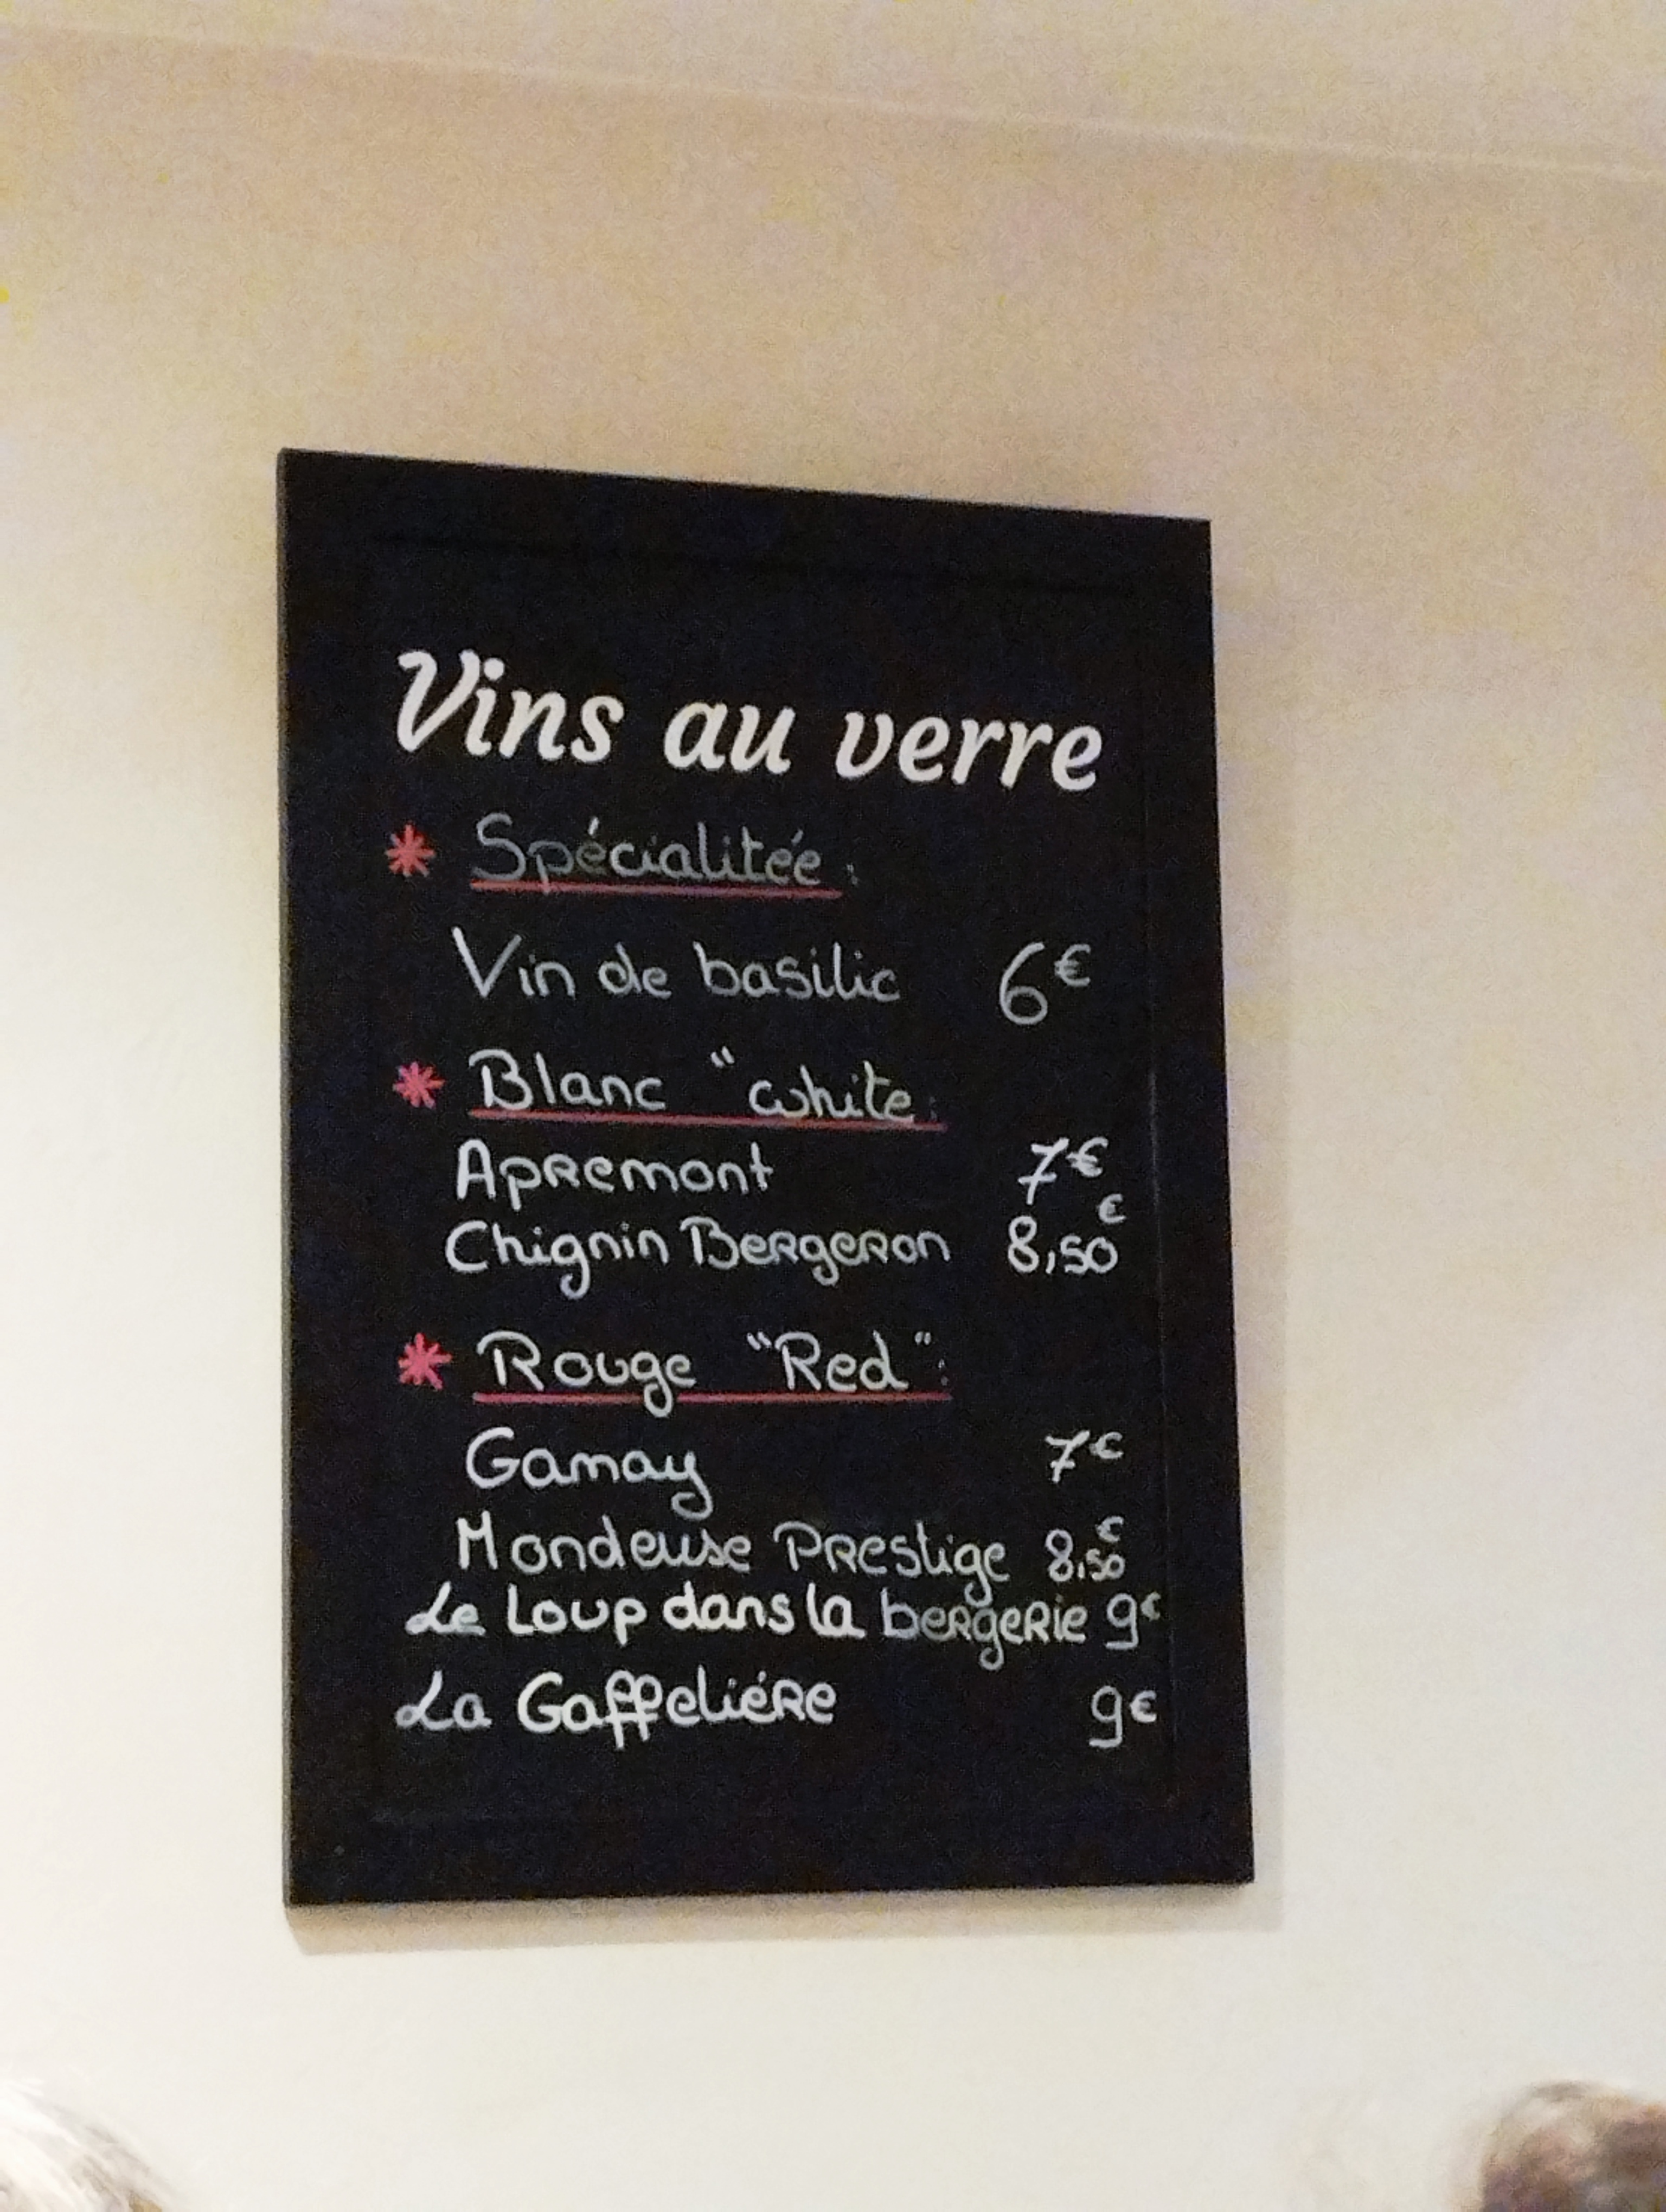 Vins au verre
* Spécialitée :
Vin de basilic 6€
* Blanc "white :
Apremont 7€
Chignin Bergeron 8,50€
* Rouge "Red" :
Gamay 7€
Mondeuse Prestige 8,50€
Le Loup dans la bergerie 9€
La Gaffeliére 9€